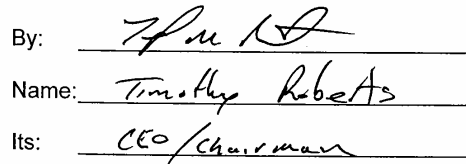 By:
Name: Timothy Roberts
Its: CEO/Chairman